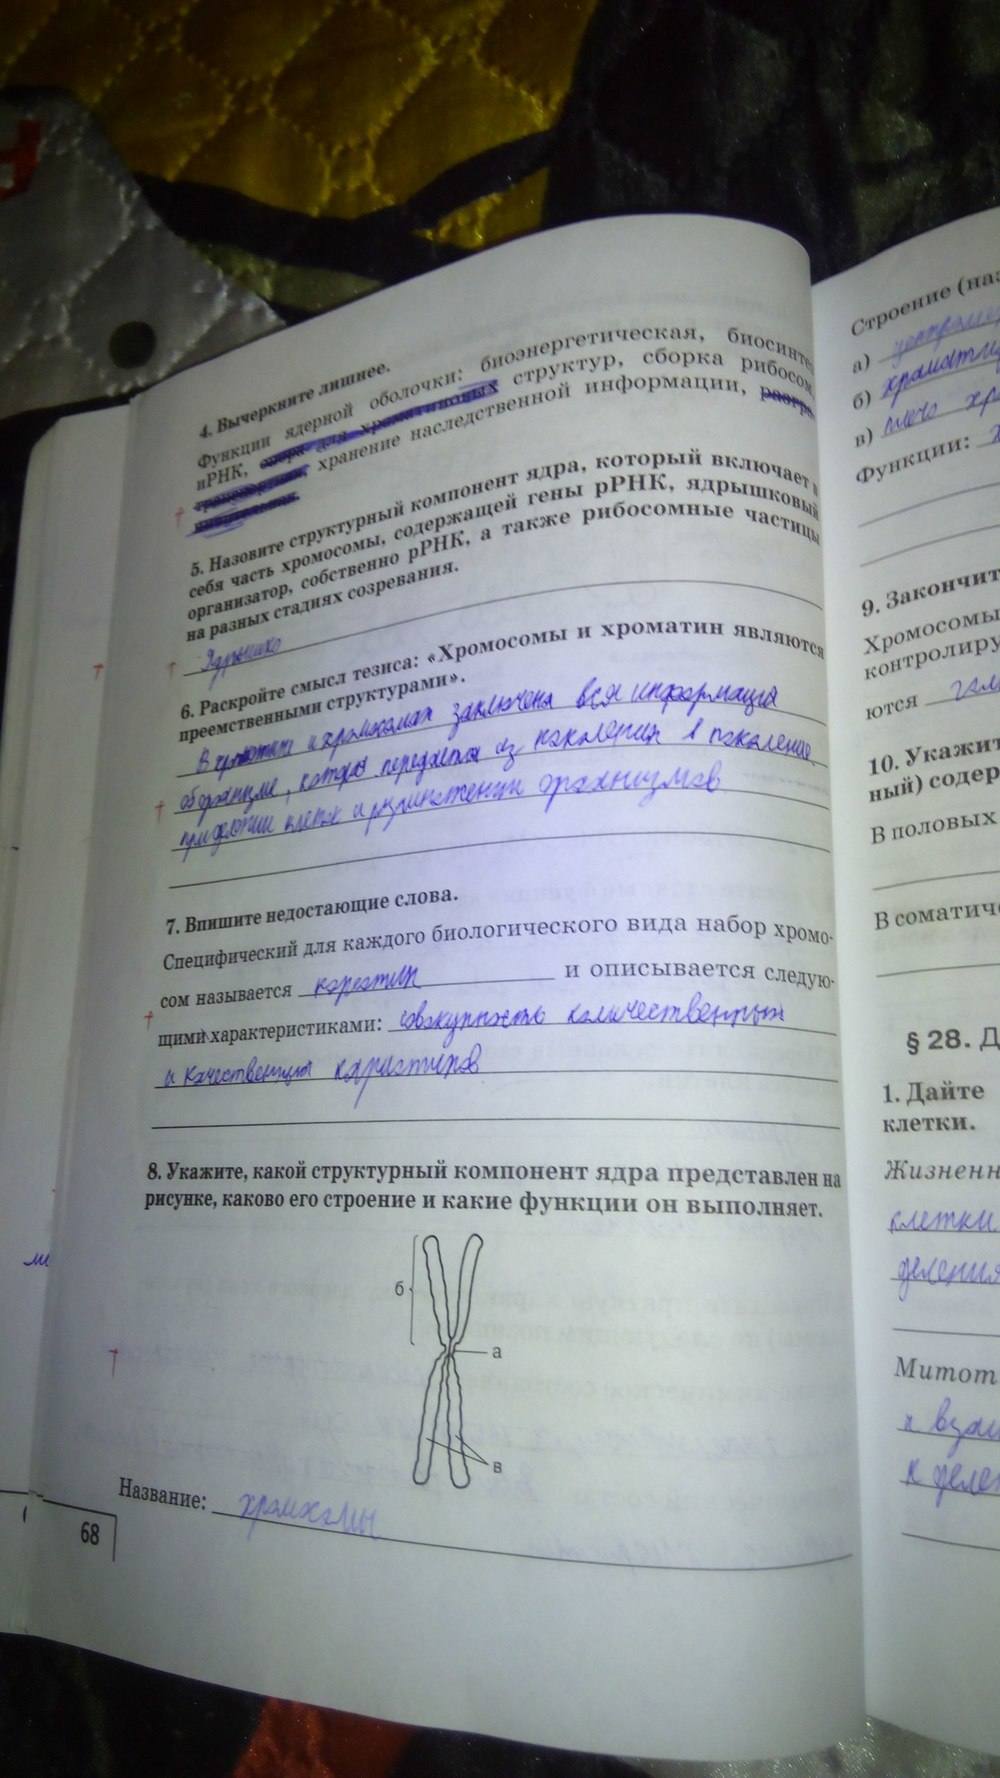 4. Вычеркните лишнее.
Функции ядерной оболочки: биоэнергетическая, биосинте
иРНК, опора для хроматиновых структур, сборка рибосом,
хранение наследственной информации,
5. Назовите структурный компонент ядра, который включает в
себя часть хромосомы, содержащей гены рРНК, ядрышковый
организатор, собственно рРНК, а также рибосомные частицы
на разных стадиях созревания.
Ядрышко
6. Раскройте смысл тезиса: «Хромосомы и хроматин являются
преемственными структурами».
В и хромосомах заключена вся информация
об организме, которая передается из поколения в поколение
при делении клеток и размножении организмов
7. Впишите недостающие слова.
Специфический для каждого биологического вида набор хромо-
сом называется кариотип и описывается следую-
щими характеристиками: совокупность количественных
и качественных
8. Укажите, какой структурный компонент ядра представлен на
рисунке, каково его строение и какие функции он выполняет.
б
а
в
Название: хромосомы
68
Строение (наз
а)
б)
в) плечо хр
Функции:
9. Закончит
Хромосомы
контролиру
ются
10. Укажит
ный) содер
В половых
В соматиче
§ 28. Д
1. Дайте
клетки.
Жизненн
клетки
деления
Митот
к
к делен